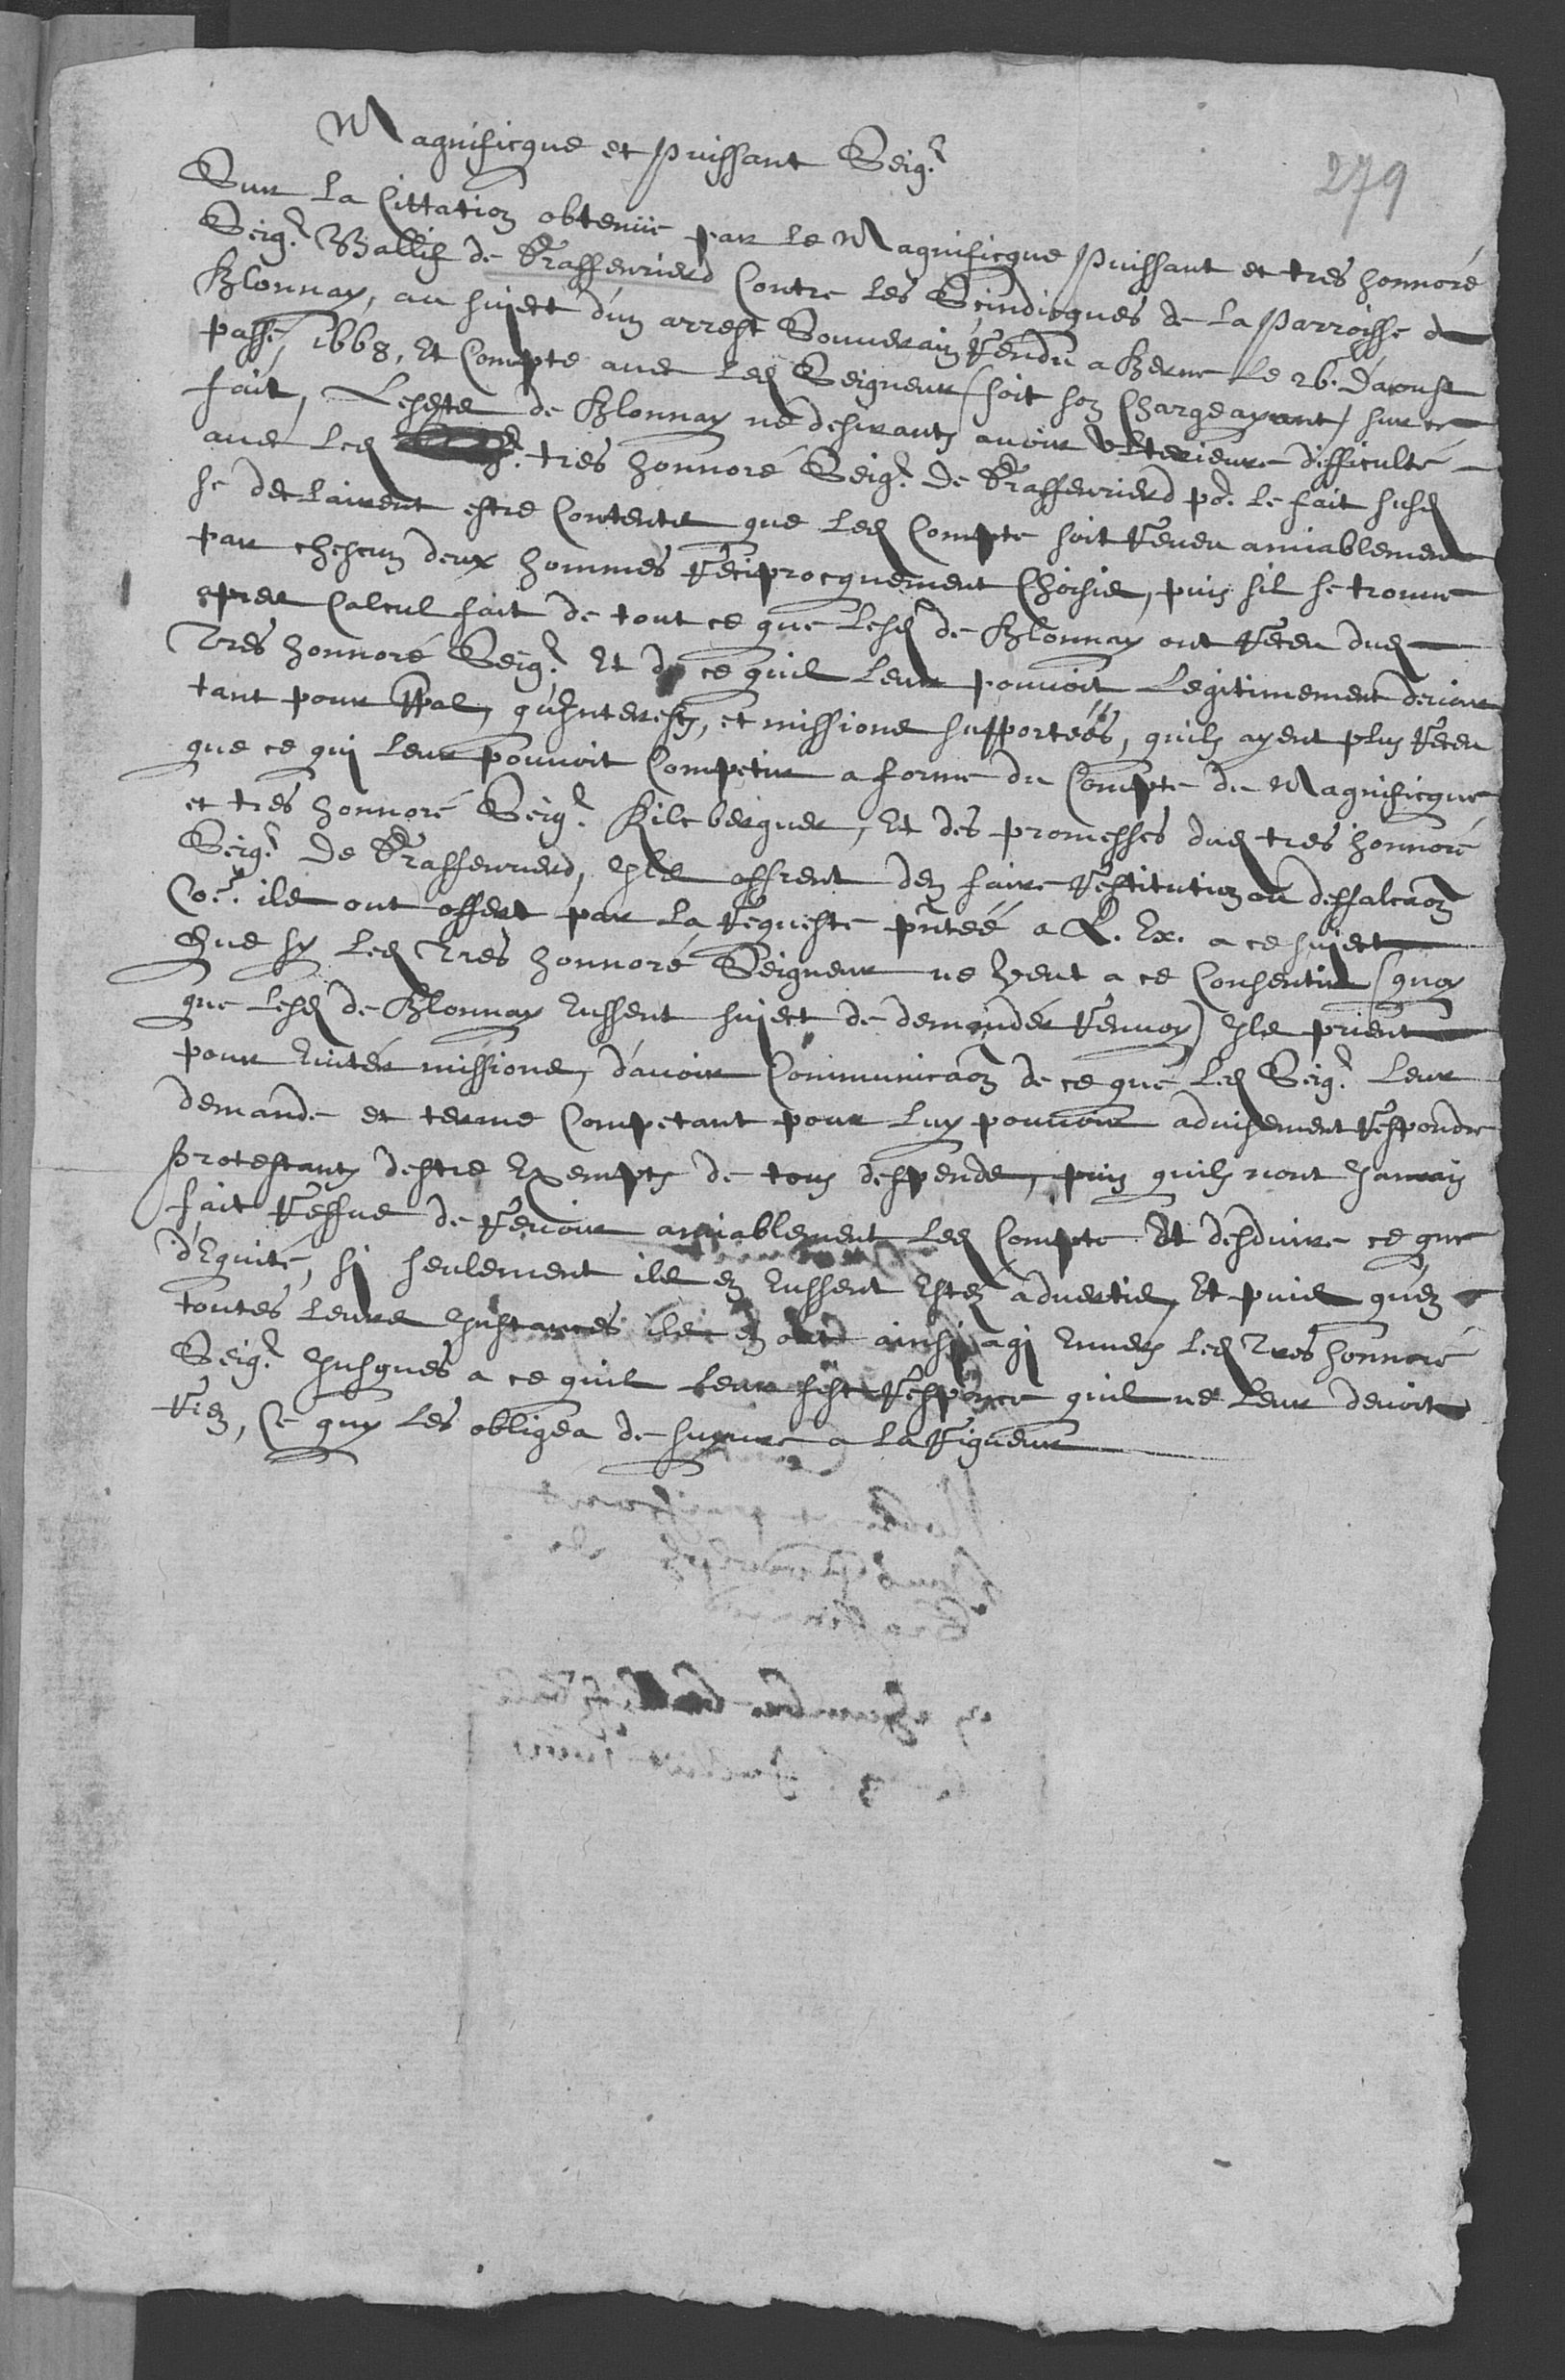 279
Magnificque et puissant Seigr
Sur la Cittation obtenüe par le Magnificque puissant et tres honnoré
Seigr Ballif de Graffenrierd Contre les Scindicques de la parroisse de
Blonnay, au suject d'un arrest Souverain Rendu a Berne le 26. D'aoust
passé, 1668, Et Compte avec led Seigneur (soit son Chargeayant) sur ce
fait, Lesdts de Blonnay ne desirants avoir ulterieure difficulté
avec led tres honnoré Seigr De Graffenrierd por le fait susd
se declairent estre Contents que led Compte soit Reveu amiablement
par chescun deux hommes Reciprocquement Choisis, puis sil se trouve
apres Calcul fait de tout ce que lesd de Blonnay ont Receu dud
Tres honnoré Seigr Et de ce quil leur pouvoit Legitimement devoir
tant pour ppal, qu'Interests, et missions supportéés, quils ayent plus Receu
que ce qui leur pouvoit Competir a forme du Compte de Magnificque
et tres honnoré Seigr Kilcberguer, Et des promesses dud tres honnoré
Seigr De Graffenrierd, Ils offrent den faire Restitution ou deffalcaon
Coe ils ont offert par la Requeste pntéé a L. Ex. a ce suject
Que sy led Tres honnoré Seigneur ne veut a ce Consentir (quoy
que lesd de Blonnay Eussent suject de demander Renvoy) Ils prient
pour Eviter missions, d'avoir Communicaon de ce que led Seigr leur
demande et terme Competant pour luy pouvoir advisement Respondre
protestants destre Exempts de tous despends, puis quils nont Jamais
fait Reffus de Revoir amiablement led Compte Et desduire ce que
d'Equité, si seulement ils en Eussent Estéz advertis, Et puis qu'en
toutes leurs Instances ils en ont ainsi agi Envers led Tres honnoré
Seigr Jusques a ce quil leur fist Responce quil ne leur devoit
Rien, Ce quy les obligea de suyvre a la Rigueur